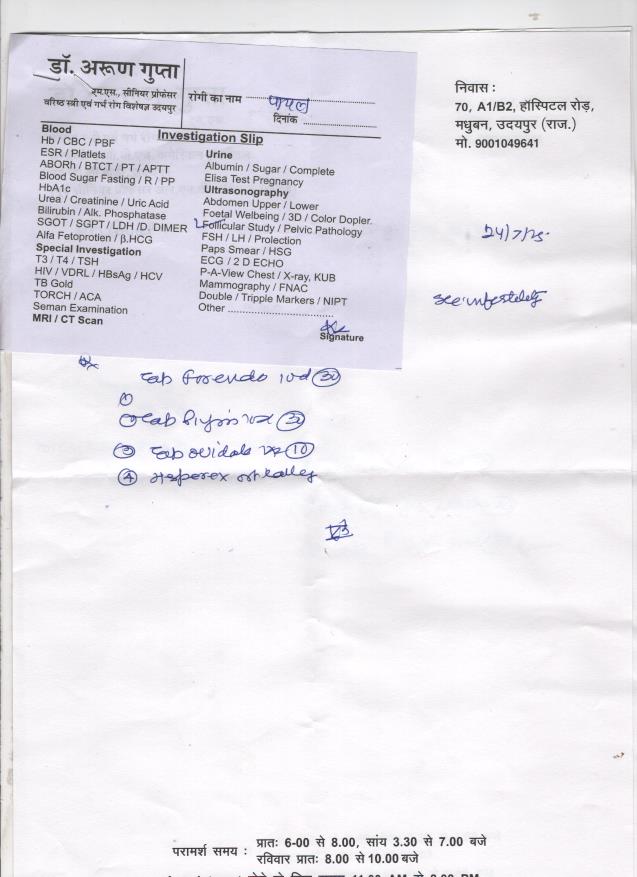 डॉ. अरूण गुप्ता
एम.एस., सीनियर प्रोफेसर
वरिष्ठ स्त्री एवं गर्भ रोग विशेषज्ञ उदयपुर
रोगी का नाम पायल
दिनांक
Investigation Slip
Blood
Hb / CBC / PBF
ESR / Platelets
ABORh / BTCT / PT / APTT
Blood Sugar Fasting / R / PP
HbA1c
Urea / Creatinine / Uric Acid
Bilirubin / Alk. Phosphatase
SGOT / SGPT / LDH /D. DIMER
Alfa Fetoprotien / β.HCG
Special Investigation
T3 / T4 / TSH
HIV / VDRL / HBsAg / HCV
TB Gold
TORCH / ACA
Seman Examination
MRI / CT Scan
Urine
Albumin / Sugar / Complete
Elisa Test Pregnancy
Ultrasonography
Abdomen Upper / Lower
Foetal Welbeing / 3D / Color Dopler.
Follicular Study / Pelvic Pathology
FSH / LH / Prolection
Paps Smear / HSG
ECG / 2 D ECHO
P-A-View Chest / X-ray, KUB
Mammography / FNAC
Double / Tripple Markers / NIPT
Other
Signature
निवास :
70, A1/B2, हॉस्पिटल रोड़,
मधुबन, उदयपुर (राज.)
मो. 9001049641
24/7/25
infertility
Tab 30
①
② Tab
③ Tab 10
④
परामर्श समय : प्रातः 6-00 से 8.00, सांय 3.30 से 7.00 बजे
रविवार प्रातः 8.00 से 10.00 बजे